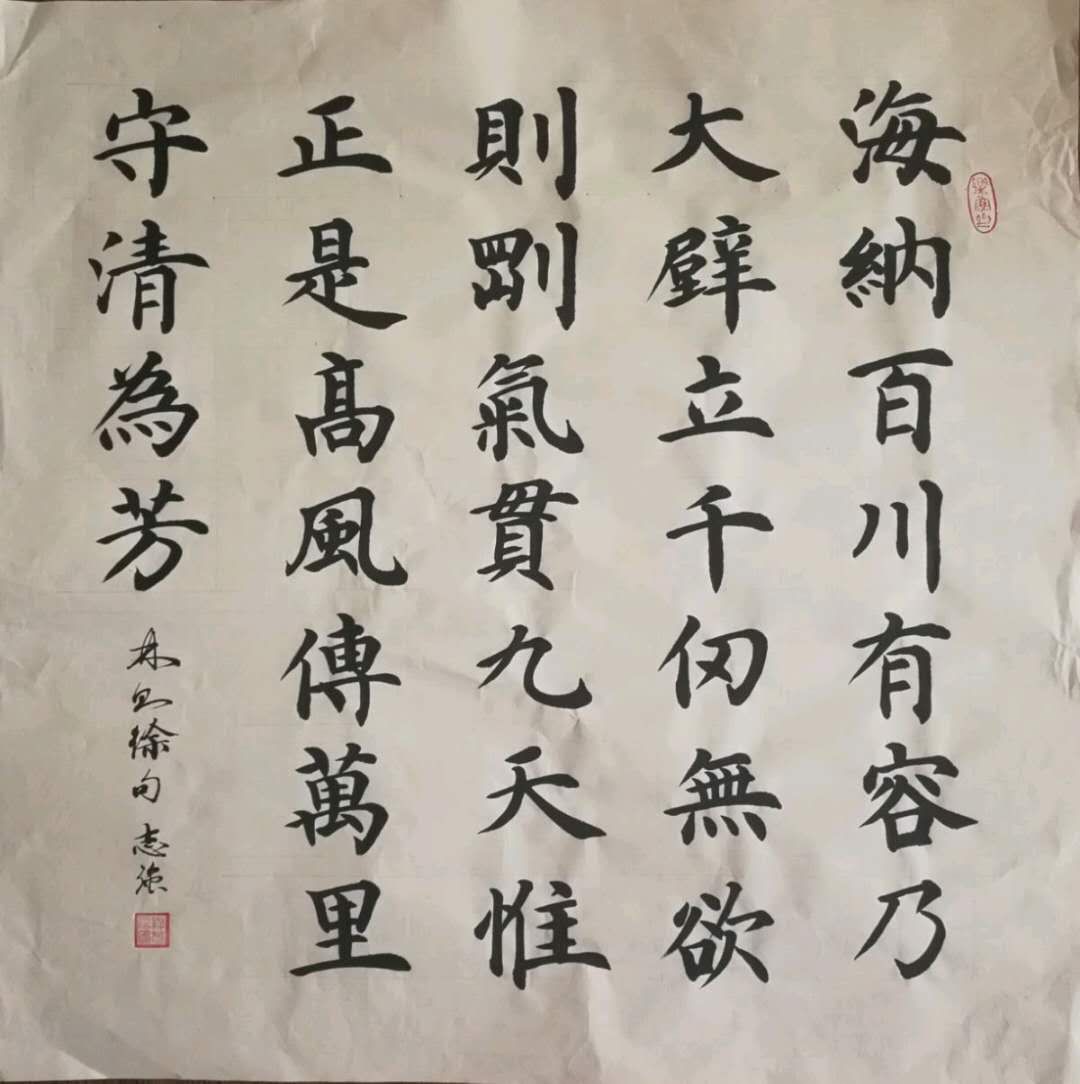 海納百川有容乃
大壁立千仞無欲
則剛氣貫九天惟
正是高風傳萬里
守清為芳
林則徐句 志強